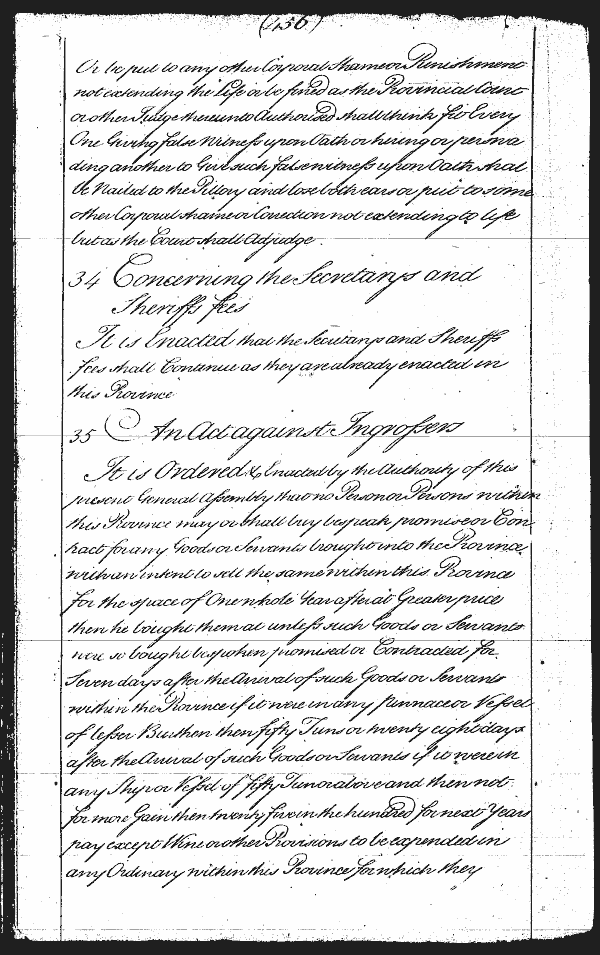 (456)
Or be put to any other Corporal Shame or Punishment
not extending the life or be fined as the Provincial Court
or other Judge thereunto Authorized shall think fit Every
One Giving false Witness upon Oath or hiring or perswa
ding another to Give such false witness upon Oath shal
be Nailed to the Pillory and lose both ears or put to some
other Corporal shame or Correction not extending to life
but as the Court shall Adjudge.
34 Concerning the Secretarys and
Sheriffs fees
It is Enacted that the Secretarys and Sheriffs
fees shall Continue as they are already enacted in
this Province
35 An Act against Ingrossers
It is Ordered & Enacted by the Authority of this
present General Assembly that no Person or Persons within
this Province may or shall buy bespeak promise or Con
tract for any Goods or Servants brought into the Province
with an intent to sell the same within this Province
for the space of One whole Year after at Greater price
then he bought them at unless such Goods or Servants
were so bought bespoken promised or Contracted for
Seven days after the Arrival of such Goods or Servants
within the Province if it were in any pinnace or Vessel
of lesser Burthen then fifty Tuns or twenty eight days
after the Arrival of such Goods or Servants if it were in
any Ship or Vessel of fifty Tun or above and then not
for more Gain then twenty five in the hundred for next Years
pay except Wine or other Provisions to be expended in
any Ordinary within this Province for which they